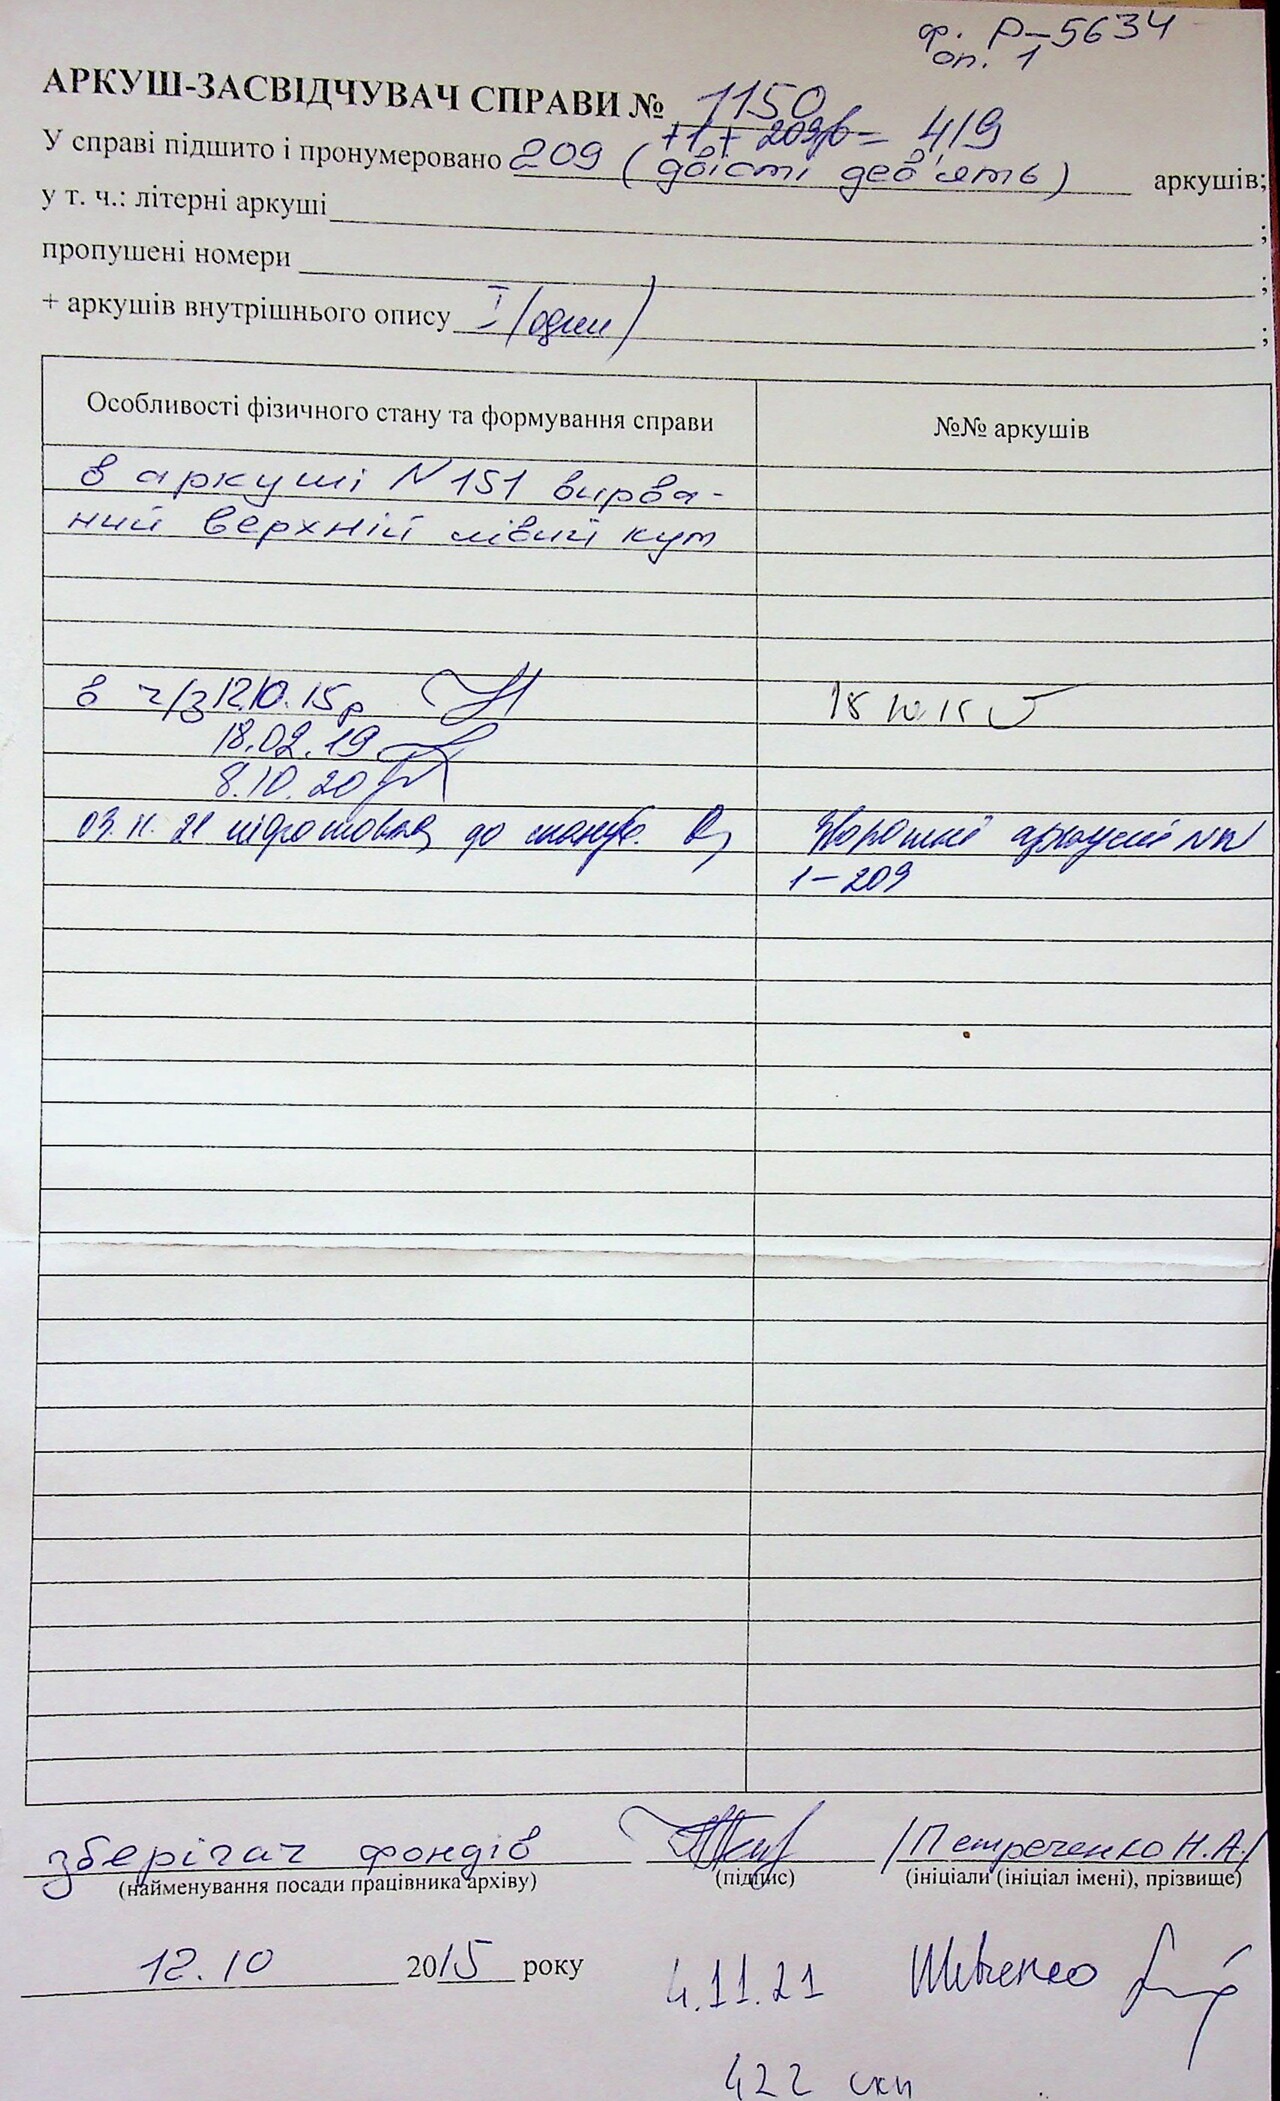 ф. Р-5634
оп. 1
АРКУШ-ЗАСВІДЧУВАЧ СПРАВИ № 1150
+1+ 209 = 419
У справі підшито і пронумеровано 209 (двісті дев'ять) аркушів;
у т. ч.: літерні аркуші ;
пропущені номери ;
+ аркушів внутрішнього опису I (один) ;
Особливості фізичного стану та формування справи №№ аркушів
в аркуші N 151 вирва-
ний верхній лівий кут
в ч/з 12.10.15р 15 10.15
18.02.19
8.10.20
03.11.21 до Зворотні аркушів NN
1-209
зберігач фондів /Петреченко Н.А/
(найменування посади працівника архіву) (підпис) (ініціали (ініціал імені), прізвище)
12.10 2015 року 4.11.21 Шевченко
422 скн